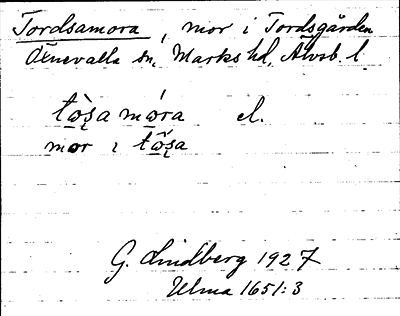 Tordsamora, mor i Tordsgården
Öxnevalla sn, Marks hd, Älvsb. l.
tɷ̀ʂa mɷ́ra el.
mor ı tɷ̃ʂa
G. Lindberg 1927
Ulma 1651:3